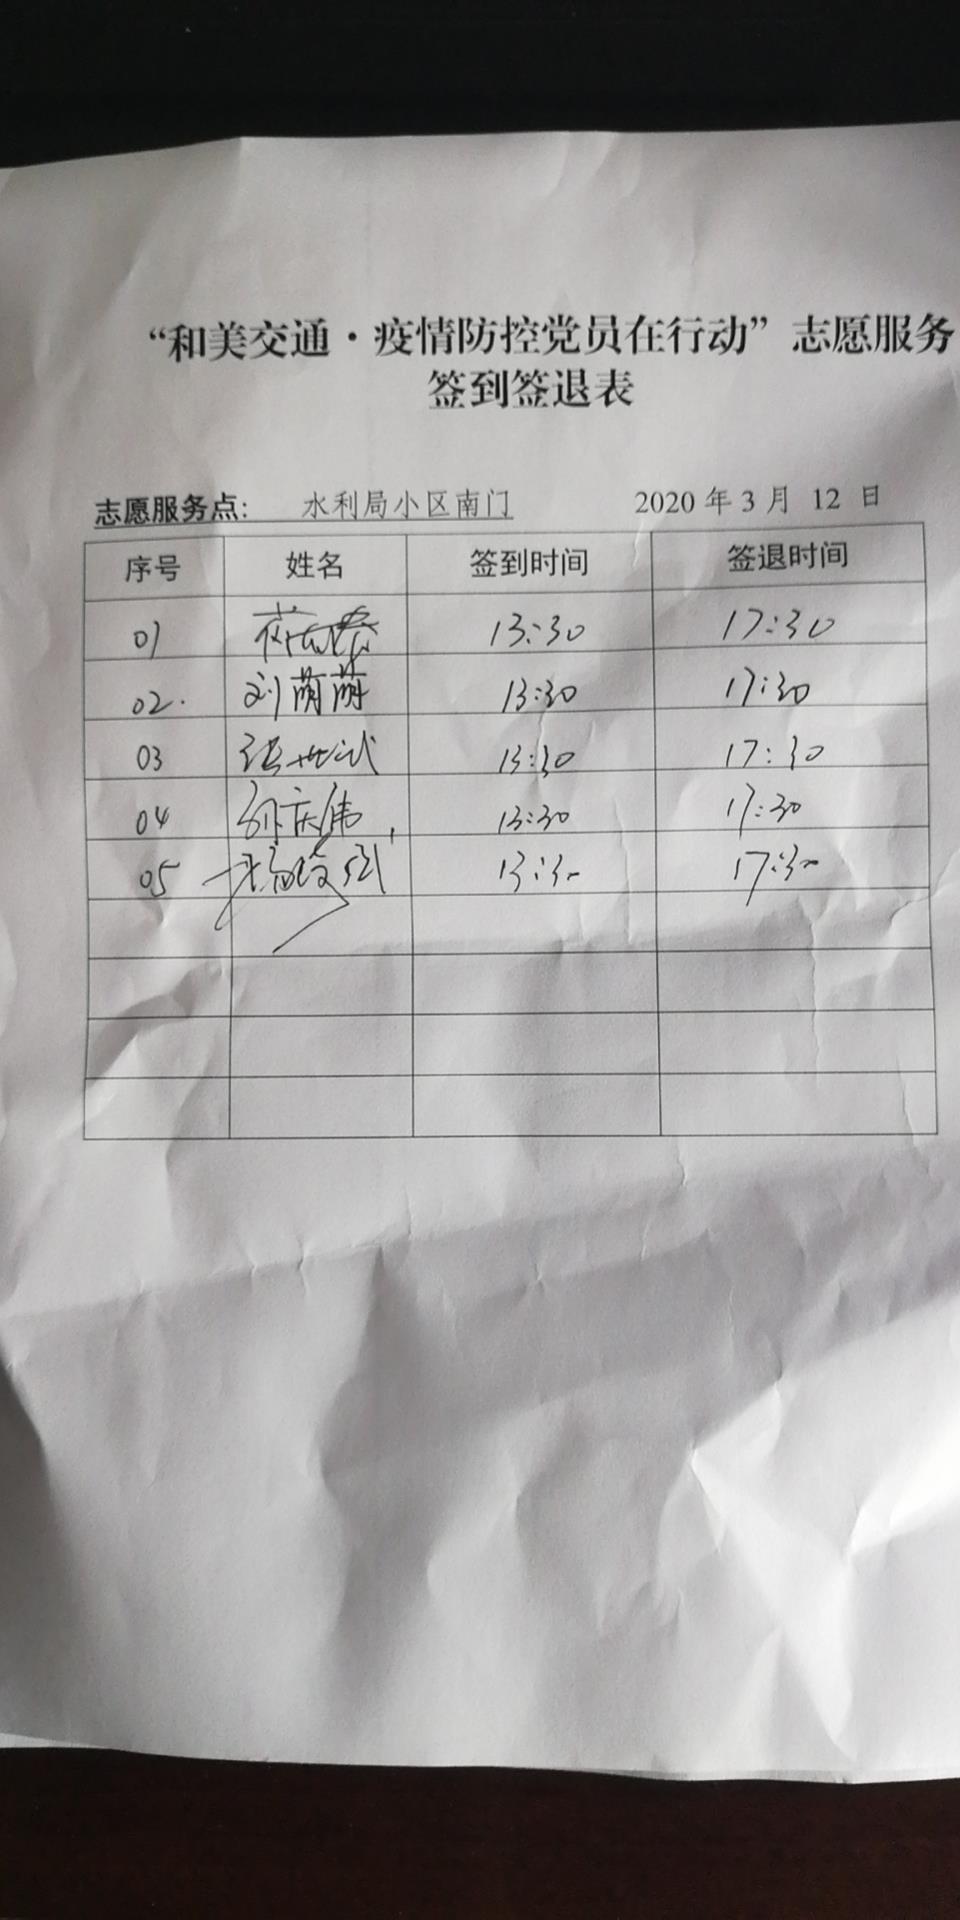 “和美交通·疫情防控党员在行动”志愿服务
签到签退表
志愿服务点: 水利局小区南门 2020 年 3 月 12 日
序号 姓名 签到时间 签退时间
01 13:30 17:30
02. 刘萌萌 13:30 17:30
03 张世斌 13:30 17:30
04 孙庆伟 13:30 17:30
05 13:30 17:30